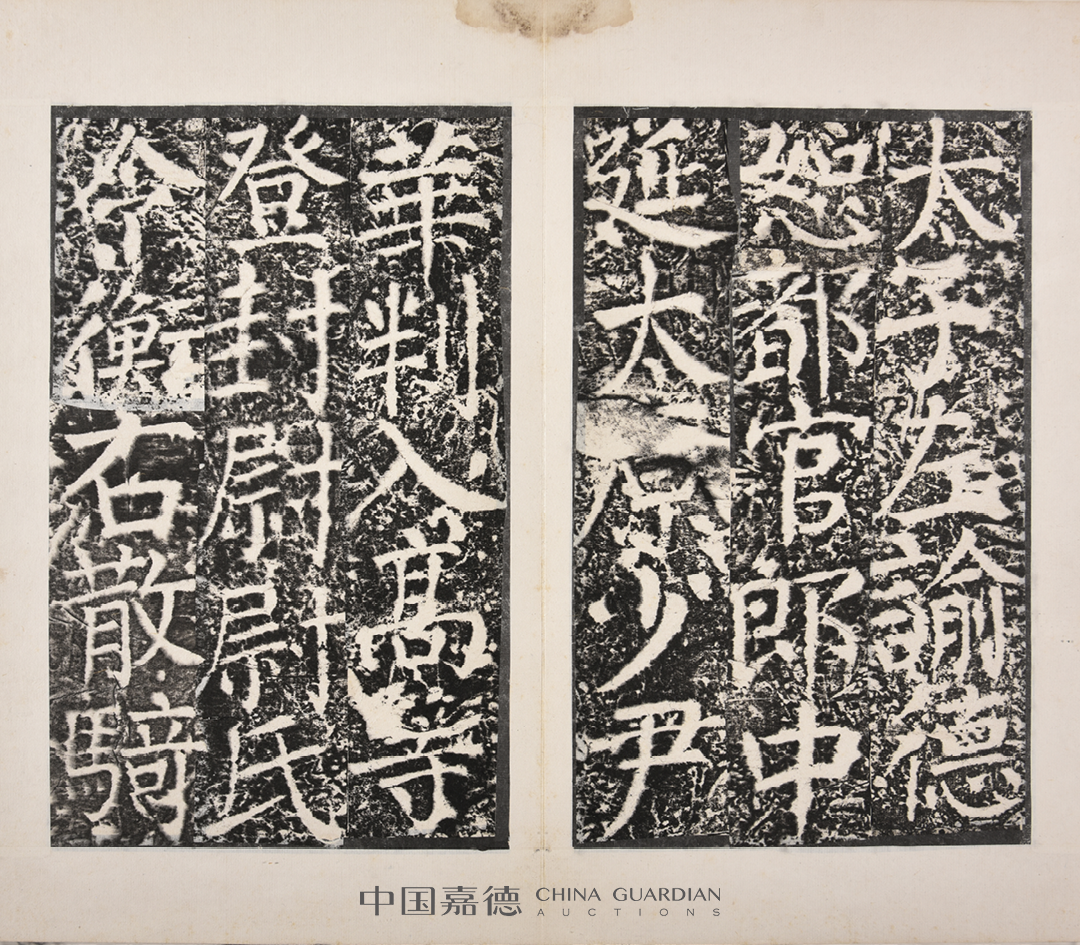 太子左諭德
恕都官郎中
延太原少尹
華判入高等
登封尉尉氏
令衡右散騎
中国嘉德 CHINA GUARDIAN
AUCTIONS